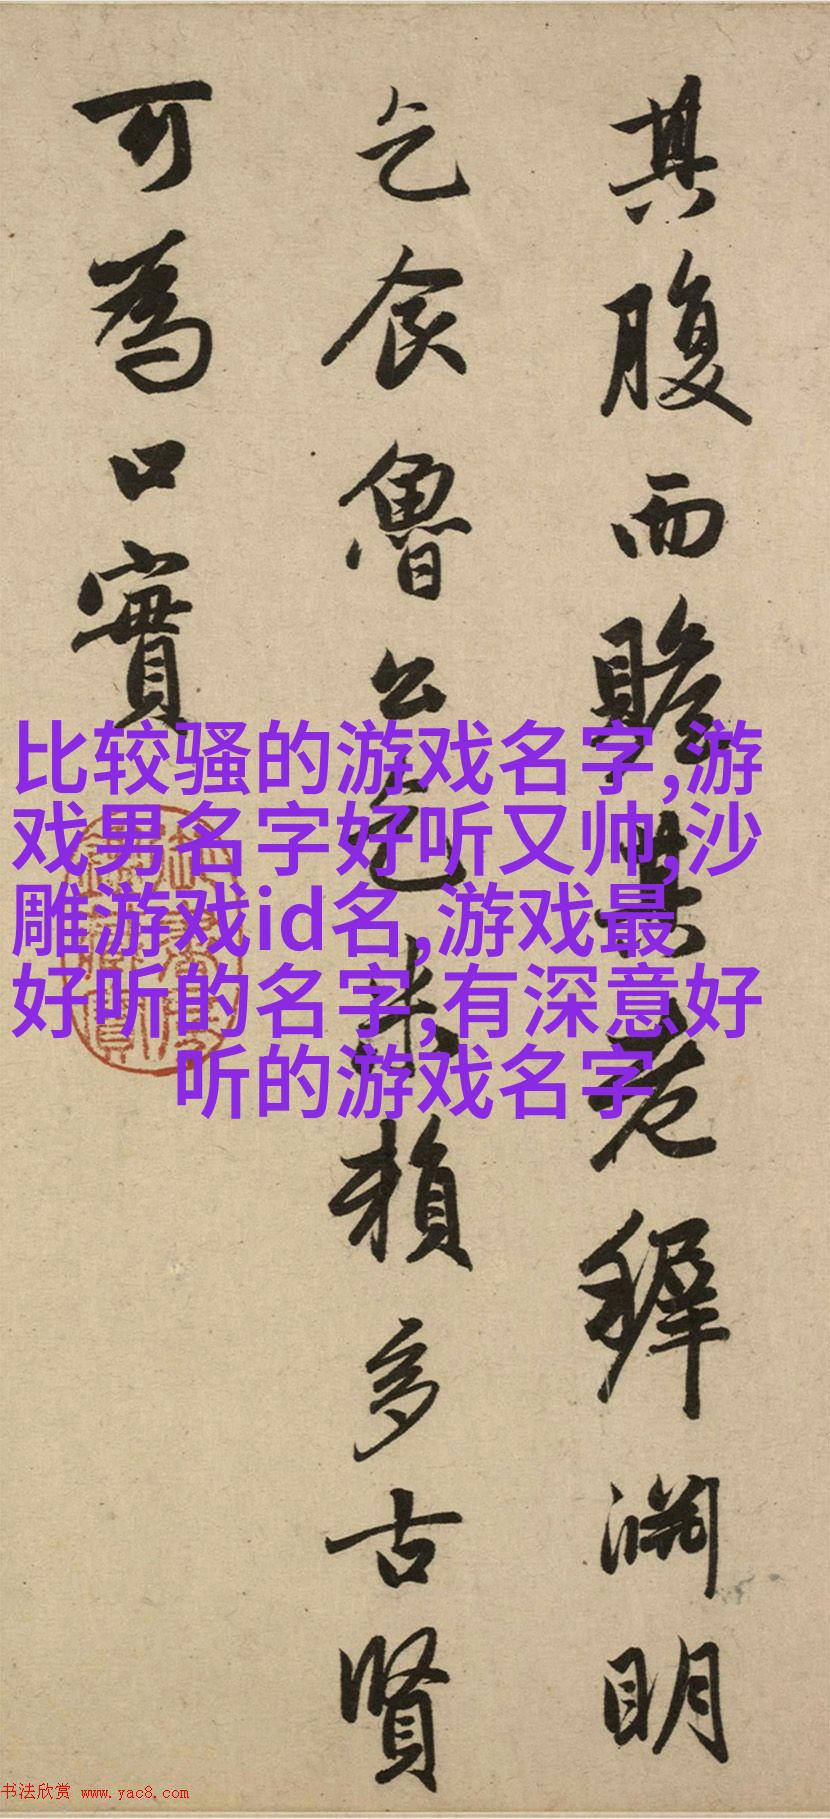 其腹而贍其老穉淵明
乞食魯公乞米賴多古賢
可為口實
比较骚的游戏名字,游
戏男名字好听又帅,沙
雕游戏id名,游戏最
好听的名字,有深意好
听的游戏名字
书法欣赏 www.yac8.com